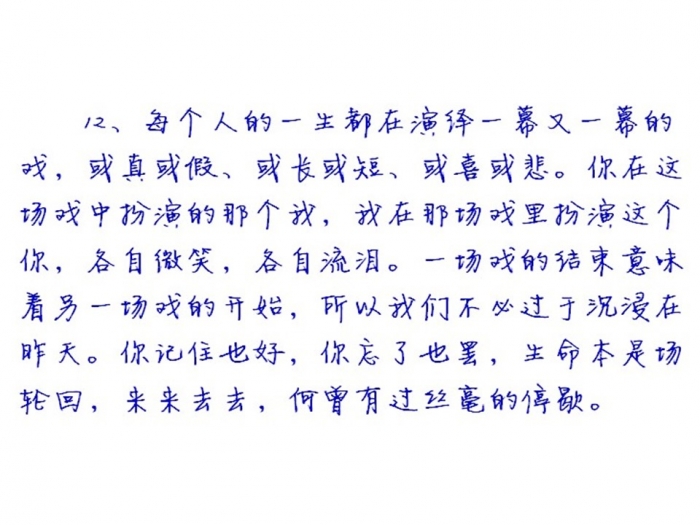 12、每个人的一生都在演绎一幕又一幕的
戏，或真或假、或长或短、或喜或悲。你在这
场戏中扮演的那个我，我在那场戏里扮演这个
你，各自微笑，各自流泪。一场戏的结束意味
着另一场戏的开始，所以我们不必过于沉浸在
昨天。你记住也好，你忘了也罢，生命本是场
轮回，来来去去，何曾有过丝毫的停歇。